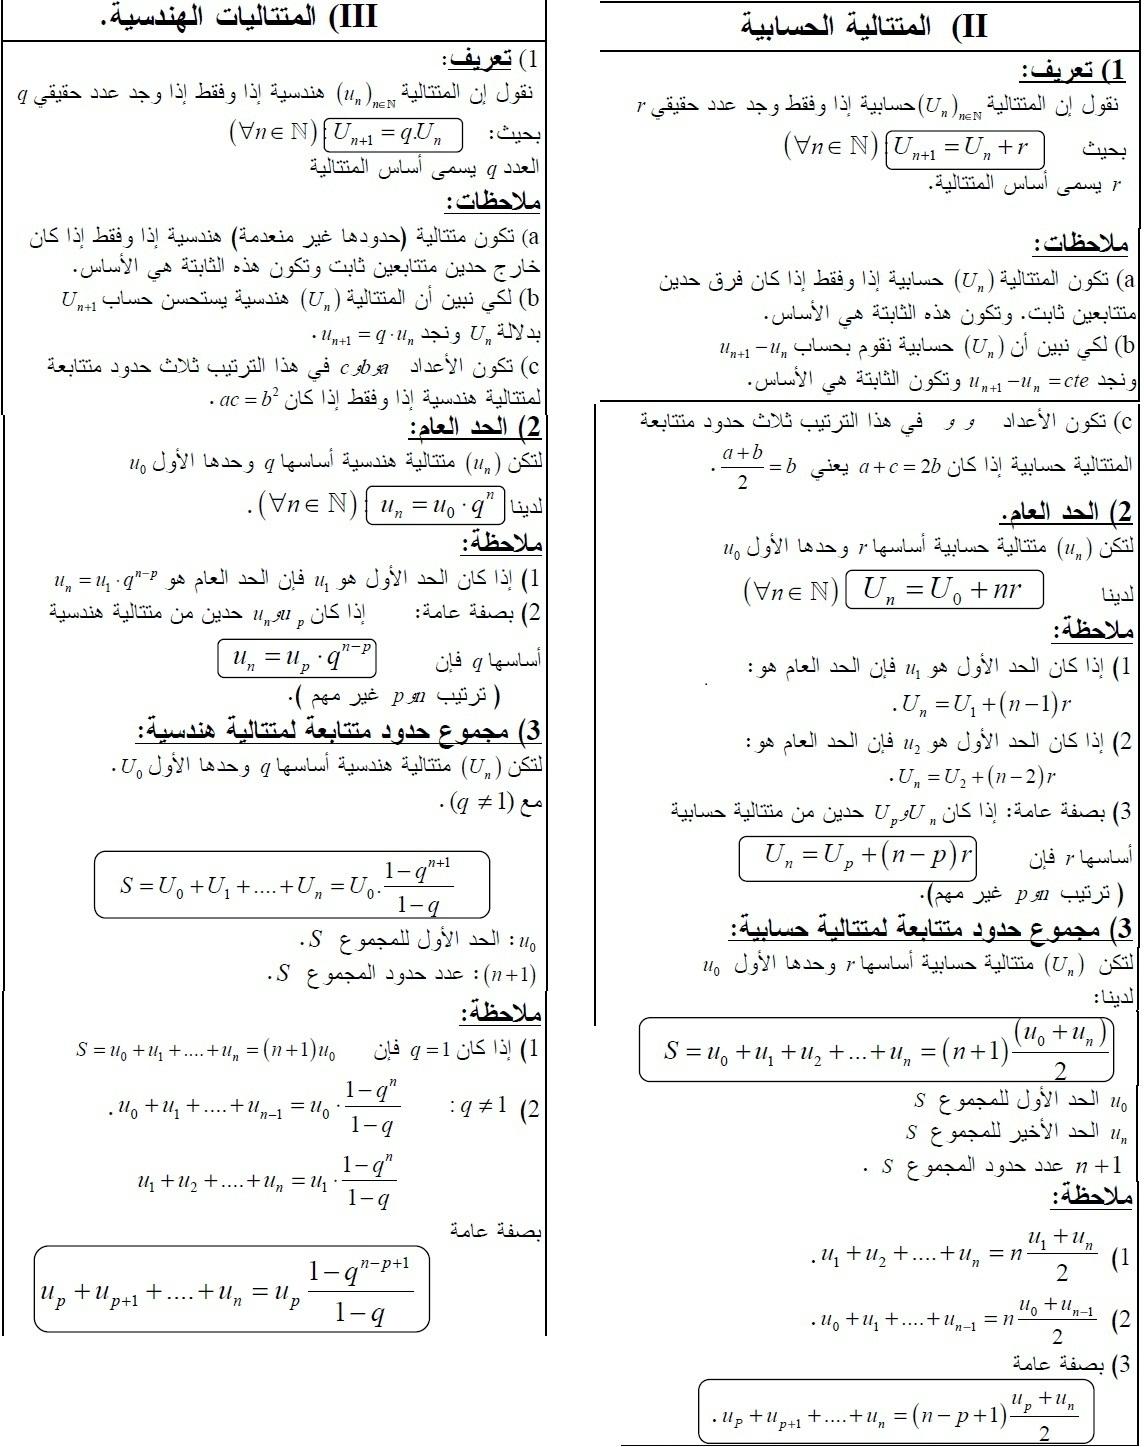 II) المتتالية الحسابية
1) تعريف:
نقول إن المتتالية (Uₙ)ₙ∈ℕ حسابية إذا وفقط وجد عدد حقيقي r
بحيث Uₙ₊₁ = Uₙ + r : (∀n ∈ ℕ)
r يسمى أساس المتتالية.
ملاحظات:
a) تكون المتتالية (Uₙ) حسابية إذا وفقط إذا كان فرق حدين
متتابعين ثابت. وتكون هذه الثابتة هي الأساس.
b) لكي نبين أن (Uₙ) حسابية نقوم بحساب uₙ₊₁ − uₙ
ونجد uₙ₊₁ − uₙ = cte وتكون الثابتة هي الأساس.
c) تكون الأعداد و و في هذا الترتيب ثلاث حدود متتابعة
المتتالية حسابية إذا كان a + c = 2b يعني (a + b)/2 = b .
2) الحد العام.
لتكن (uₙ) متتالية حسابية أساسها r وحدها الأول u₀
لدينا Uₙ = U₀ + nr (∀n ∈ ℕ)
ملاحظة:
1) إذا كان الحد الأول هو u₁ فإن الحد العام هو:
Uₙ = U₁ + (n − 1)r .
2) إذا كان الحد الأول هو u₂ فإن الحد العام هو:
Uₙ = U₂ + (n − 2)r .
3) بصفة عامة: إذا كان Uₙ و U_p حدين من متتالية حسابية
أساسها r فإن Uₙ = U_p + (n − p)r
( ترتيب n و p غير مهم).
3) مجموع حدود متتابعة لمتتالية حسابية:
لتكن (Uₙ) متتالية حسابية أساسها r وحدها الأول u₀
لدينا:
S = u₀ + u₁ + u₂ + ... + uₙ = (n + 1)(u₀ + uₙ)/2
u₀ الحد الأول للمجموع S
uₙ الحد الأخير للمجموع S
n + 1 عدد حدود المجموع S .
ملاحظة:
1) u₁ + u₂ + .... + uₙ = n (u₁ + uₙ)/2 .
2) u₀ + u₁ + .... + uₙ₋₁ = n (u₀ + uₙ₋₁)/2 .
3) بصفة عامة
u_P + u_{p+1} + .... + uₙ = (n − p + 1)(u_p + uₙ)/2 .
III) المتتاليات الهندسية.
1) تعريف:
نقول إن المتتالية (uₙ)ₙ∈ℕ هندسية إذا وفقط إذا وجد عدد حقيقي q
بحيث: Uₙ₊₁ = q.Uₙ : (∀n ∈ ℕ)
العدد q يسمى أساس المتتالية
ملاحظات:
a) تكون متتالية (حدودها غير منعدمة) هندسية إذا وفقط إذا كان
خارج حدين متتابعين ثابت وتكون هذه الثابتة هي الأساس.
b) لكي نبين أن المتتالية (Uₙ) هندسية يستحسن حساب Uₙ₊₁
بدلالة Uₙ ونجد uₙ₊₁ = q · uₙ .
c) تكون الأعداد a و b و c في هذا الترتيب ثلاث حدود متتابعة
لمتتالية هندسية إذا وفقط إذا كان ac = b² .
2) الحد العام:
لتكن (uₙ) متتالية هندسية أساسها q وحدها الأول u₀
لدينا uₙ = u₀ · qⁿ : (∀n ∈ ℕ) .
ملاحظة:
1) إذا كان الحد الأول هو u₁ فإن الحد العام هو uₙ = u₁ · qⁿ⁻ᵖ
2) بصفة عامة: إذا كان u_p و uₙ حدين من متتالية هندسية
أساسها q فإن uₙ = u_p · qⁿ⁻ᵖ
( ترتيب n و p غير مهم ).
3) مجموع حدود متتابعة لمتتالية هندسية:
لتكن (Uₙ) متتالية هندسية أساسها q وحدها الأول U₀ .
مع (q ≠ 1) .
S = U₀ + U₁ + .... + Uₙ = U₀. (1 − qⁿ⁺¹)/(1 − q)
u₀ : الحد الأول للمجموع S .
(n + 1) : عدد حدود المجموع S .
ملاحظة:
1) إذا كان q = 1 فإن S = u₀ + u₁ + .... + uₙ = (n + 1)u₀
2) q ≠ 1 : u₀ + u₁ + .... + uₙ₋₁ = u₀ · (1 − qⁿ)/(1 − q) .
u₁ + u₂ + .... + uₙ = u₁ · (1 − qⁿ)/(1 − q)
بصفة عامة
u_p + u_{p+1} + .... + uₙ = u_p (1 − qⁿ⁻ᵖ⁺¹)/(1 − q)